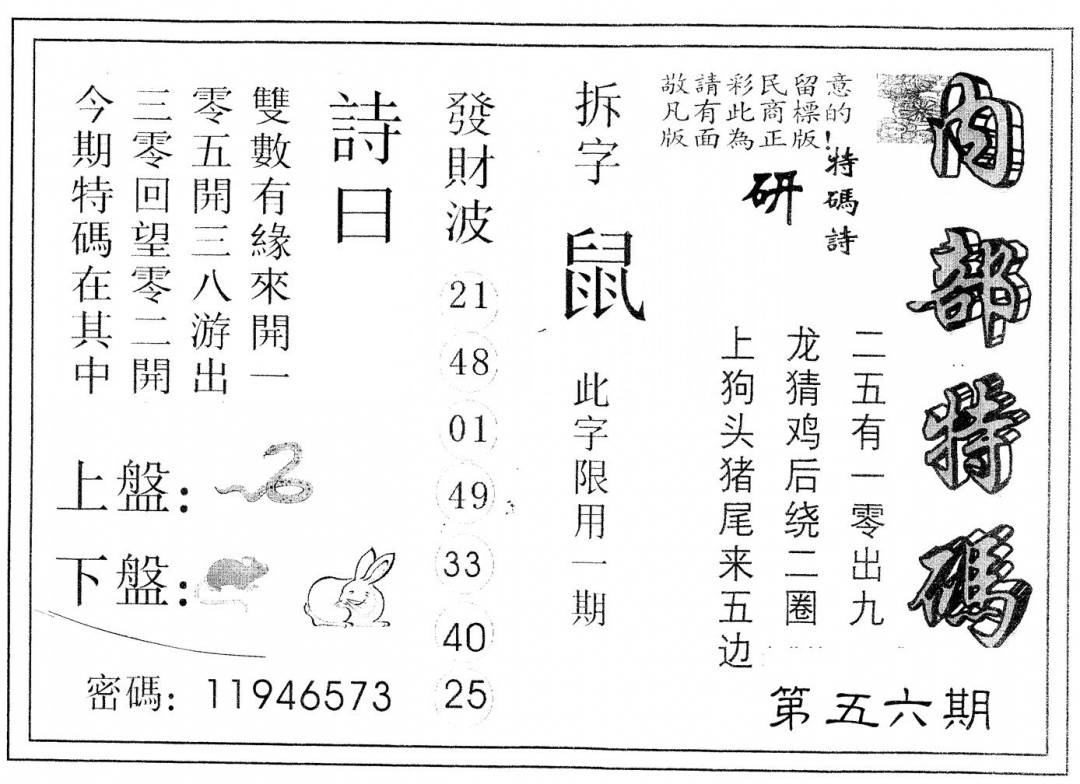 內部特碼
第五六期
敬請彩民留意
凡有此商標的
版面為正版!
特碼詩
研
二五有一零出九
龙猜鸡后绕二圈
上狗头猪尾来五边
拆字
鼠
此字限用一期
發財波
21
48
01
49
33
40
25
詩曰
雙數有緣來開一
零五開三八游出
三零回望零二開
今期特碼在其中
上盤：
下盤：
密碼：11946573